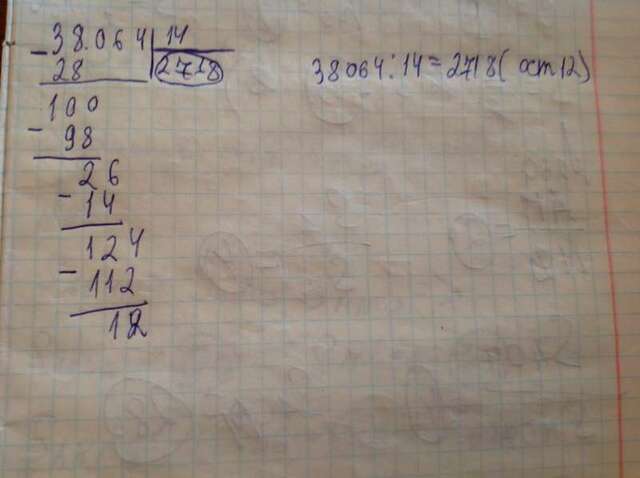 38.064 14
- 28 2718
100
- 98
26
- 14
124
- 112
12
38064:14=2718(ост12)